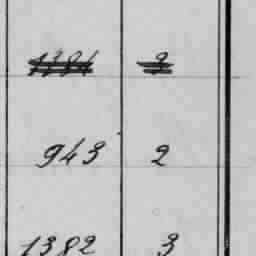 1381 3
943 2
1382 3